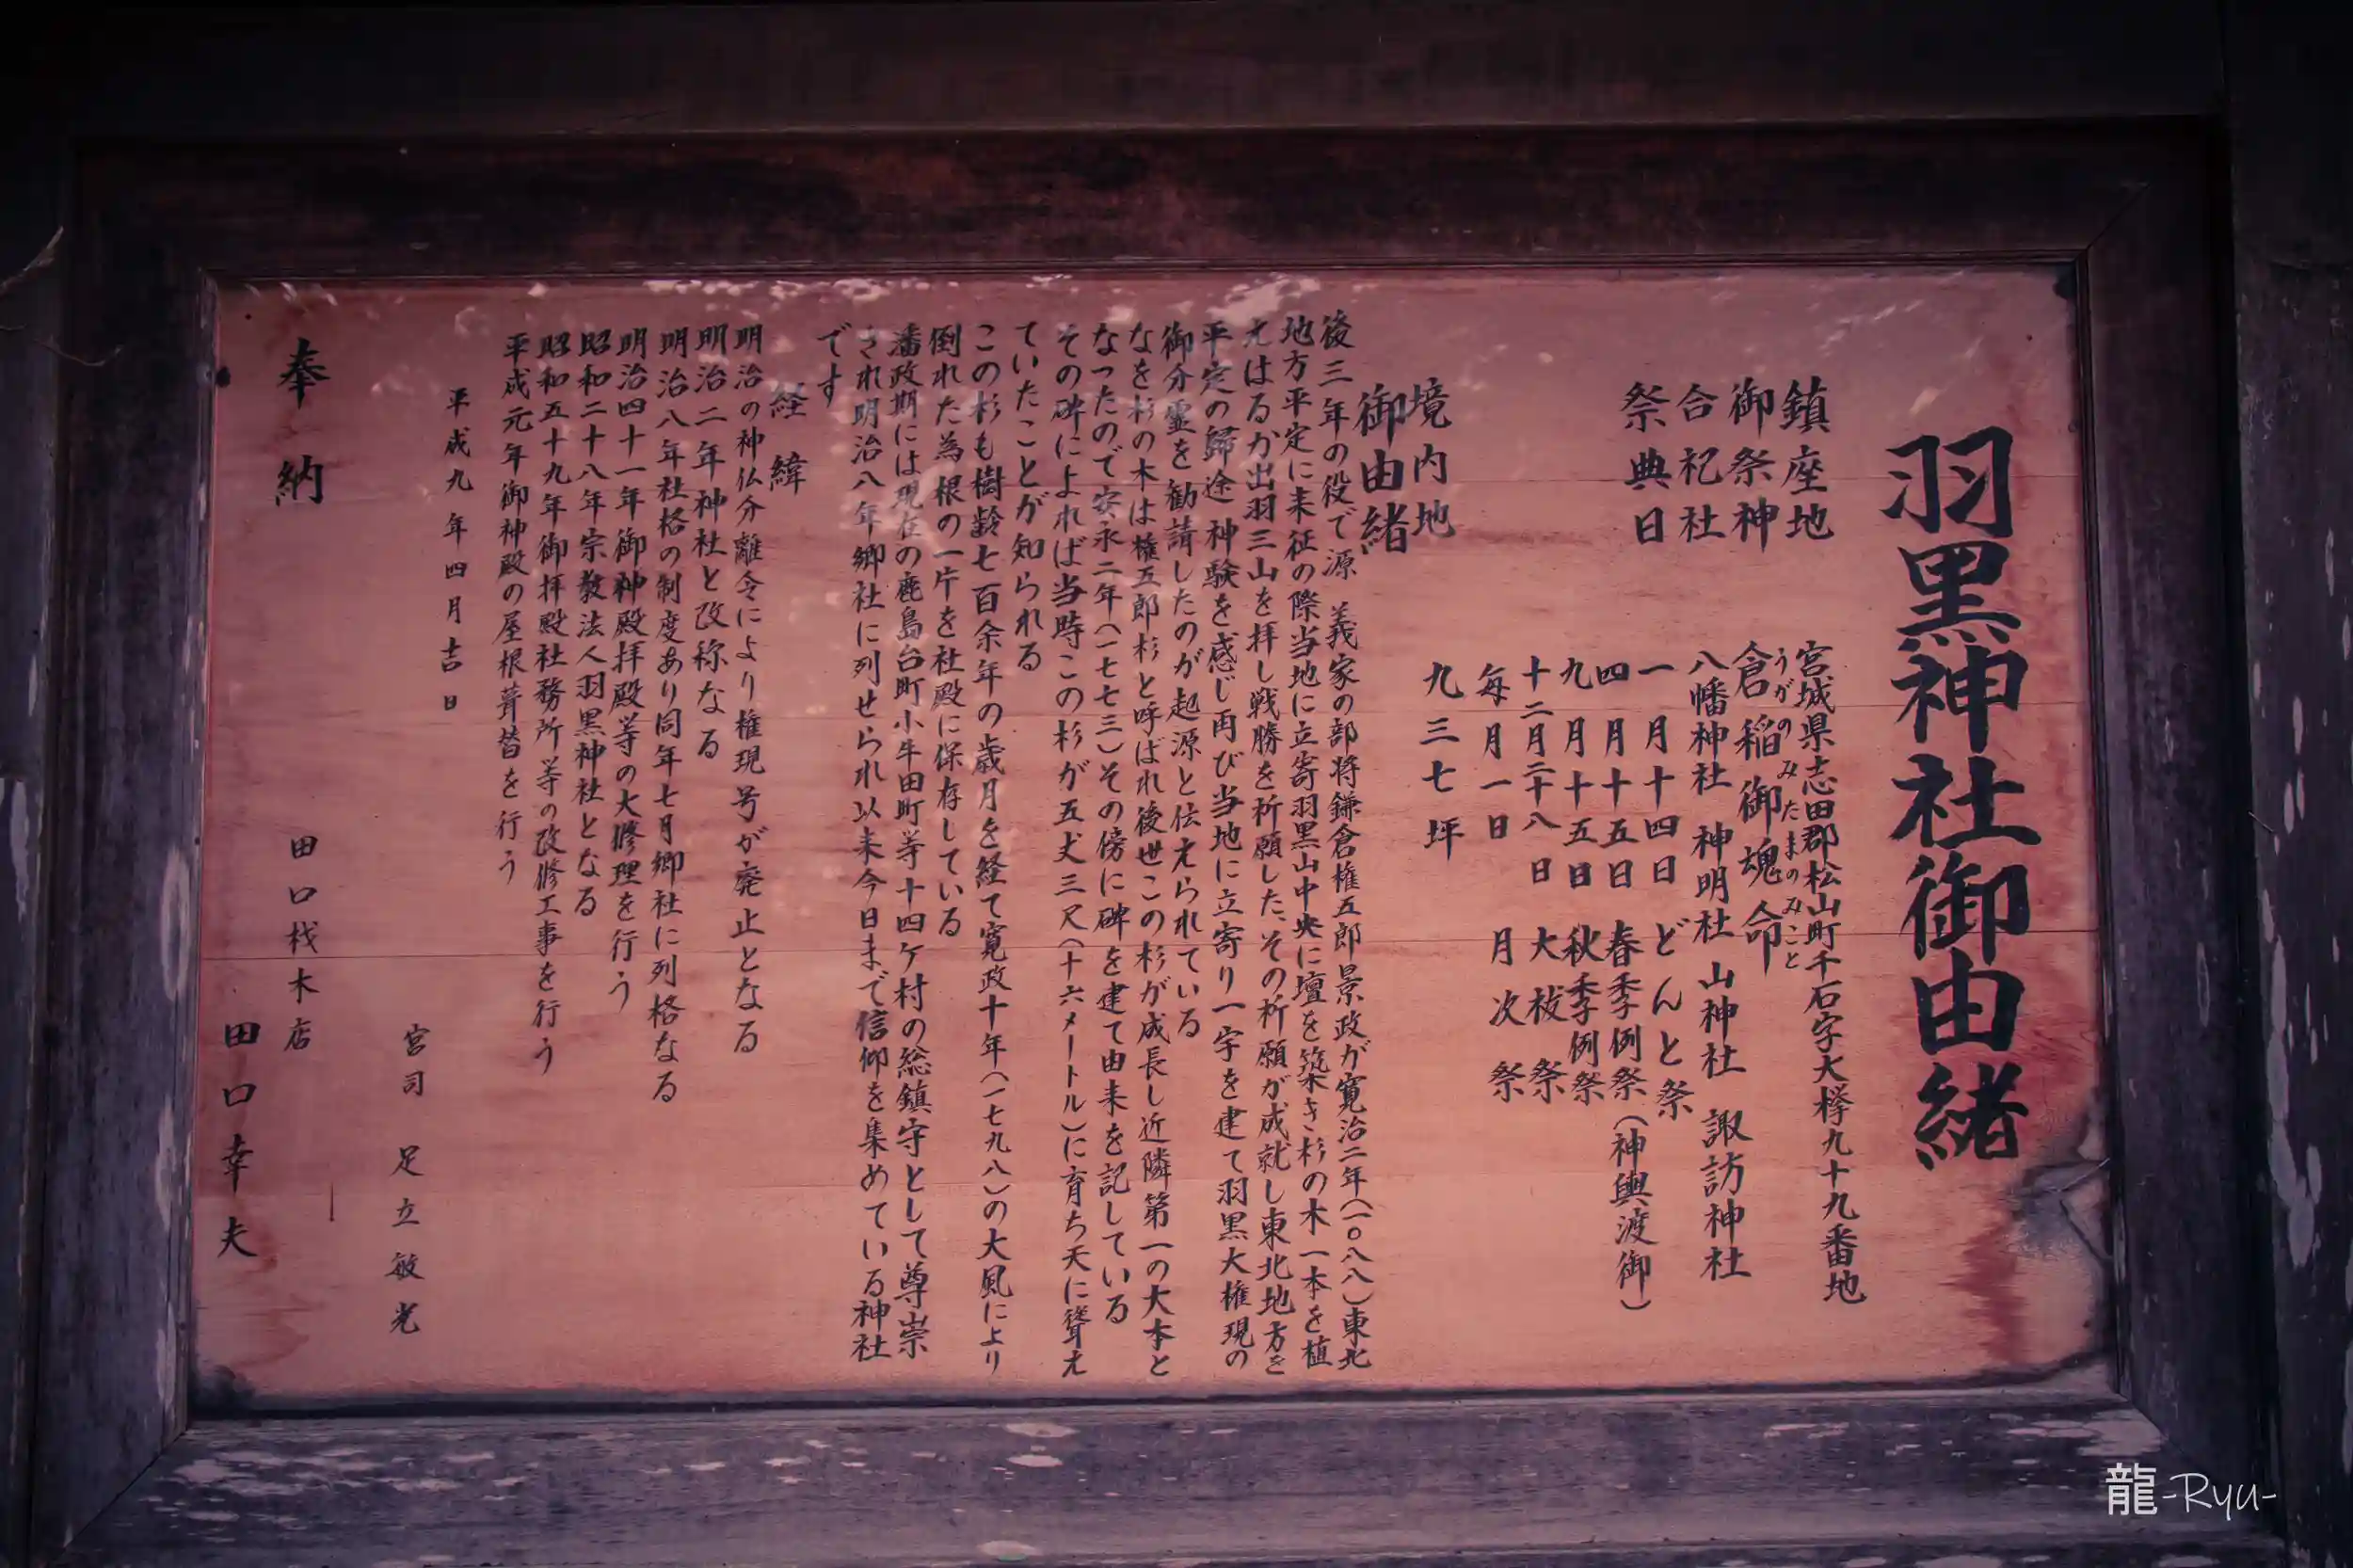 羽黒神社御由緒
鎮座地 宮城県志田郡松山町千石字大欅九十九番地
御祭神 倉稲御魂命
うがのみたまのみこと
合祀社 八幡神社 神明社 山神社 諏訪神社
祭典日 一月十四日 どんと祭
四月十五日 春季例祭(神輿渡御)
九月十五日 秋季例祭
十二月二十八日 大祓祭
毎月一日 月次祭
境内地 九三七坪
御由緒
後三年の役で源 義家の部将鎌倉権五郎景政が寛治二年(一〇八八)東北
地方平定に来征の際当地に立寄羽黒山中央に壇を築き杉の木一本を植
えはるか出羽三山を拝し戦勝を祈願した、その祈願が成就し東北地方を
平定の歸途 神験を感じ再び当地に立寄り一宇を建て羽黒大権現の
御分霊を勧請したのが起源と伝えられている
なを杉の木は権五郎杉と呼ばれ後世この杉が成長し近隣第一の大木と
なったので安永二年(一七七三)その傍に碑を建て由来を記している
その碑によれば当時この杉が五丈三尺(十六メートル)に育ち天に聳え
ていたことが知られる
この杉も樹齢七百余年の歳月を経て寛政十年(一七九八)の大風により
倒れた為根の一片を社殿に保存している
藩政期には現在の鹿島台町小牛田町等十四ヶ村の総鎮守として尊崇
され明治八年郷社に列せられ以来今日まで信仰を集めている神社
です
経緯
明治の神仏分離令により権現号が廃止となる
明治二年神社と改称なる
明治八年社格の制度あり同年七月郷社に列格なる
明治四十一年御神殿拝殿等の大修理を行う
昭和二十八年宗教法人羽黒神社となる
昭和五十九年御拝殿社務所等の改修工事を行う
平成元年御神殿の屋根葺替を行う
平成九年四月吉日
宮司 足立敏光
奉納 田口材木店
田口幸夫
龍-Ryu-